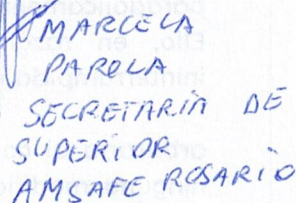 MARCELA
PAROLA
SECRETARIA DE
SUPERIOR
AMSAFE ROSARIO